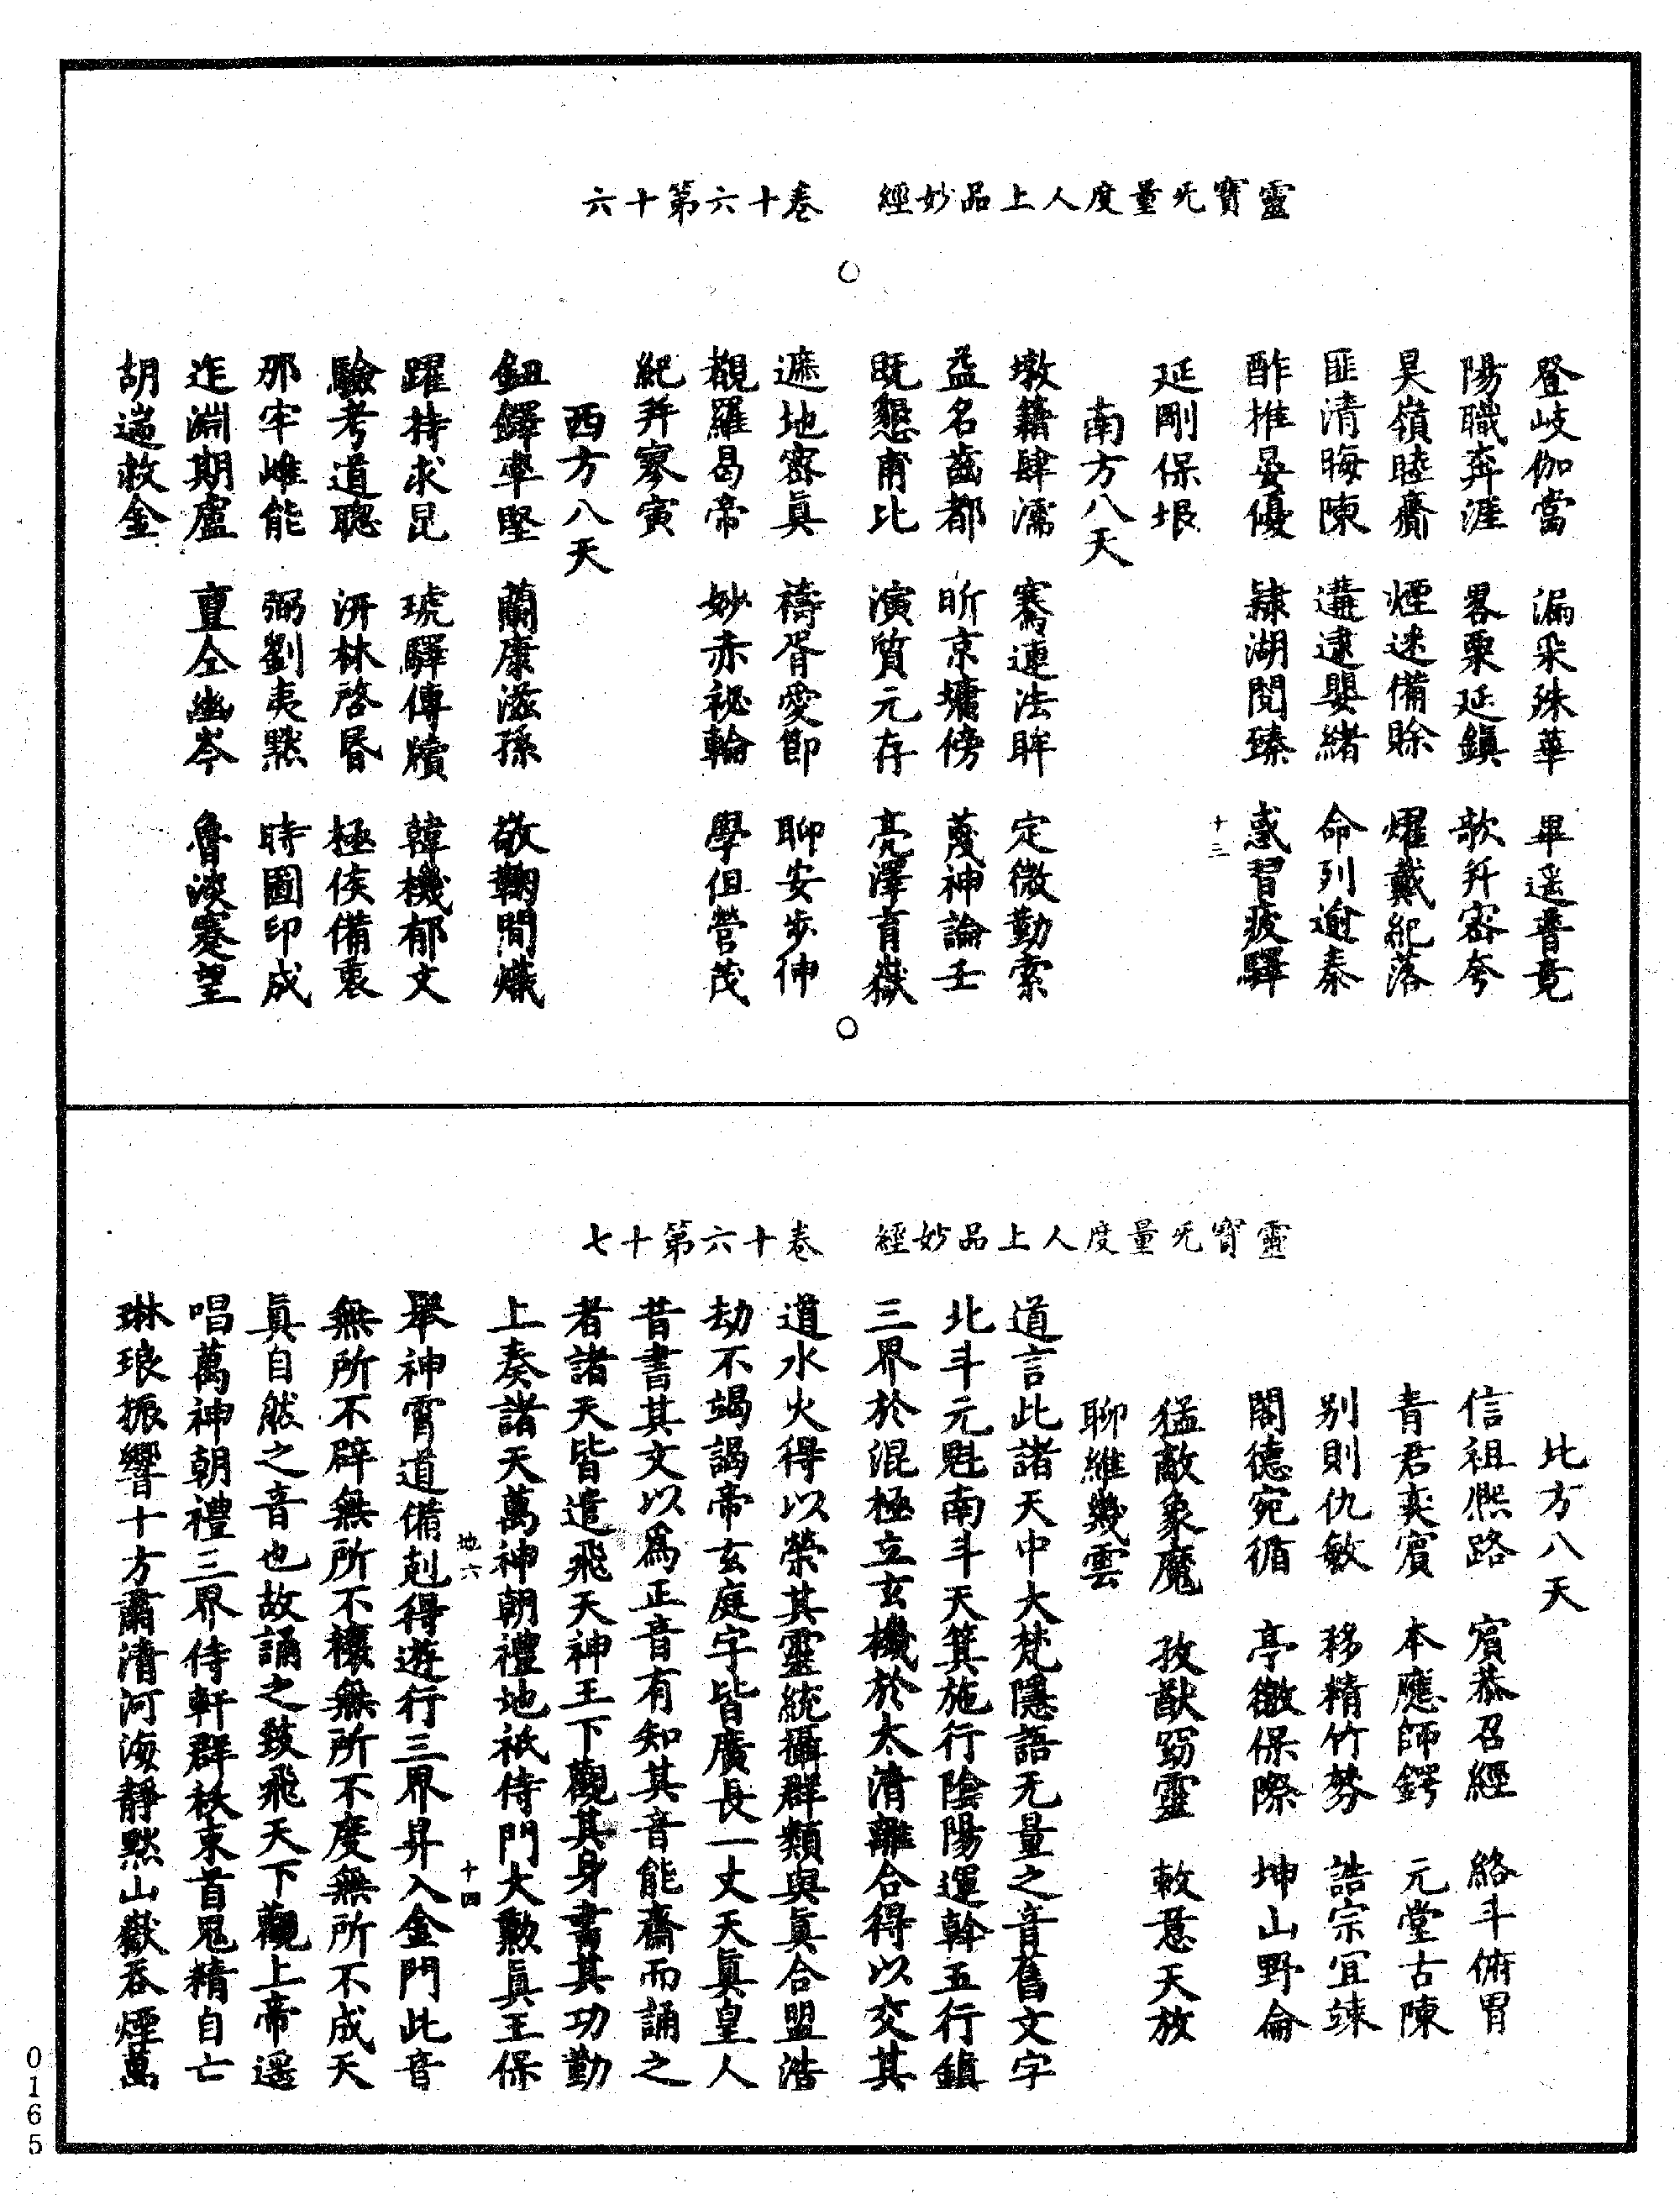 靈寶无量度人上品妙經　卷十六第十六
登岐伽當　漏朵殊華　畢遥普竟
陽職奔涯　畧栗延鎮　歆升密夸
昊嶺睦齎　煙逑備賒　燿戴紀落
匪清晦陳　遘逮嬰緒　命列逾秦
酢推晏優　隸湖閱臻　惑習疲驛
十三
延剛保垠
南方八天
墩籍肆濡　騫連法眸　定微勤索
益名齒都　昕京墉傍　蔑神論壬
旣懇甫比　演質元存　亮澤育嶽
遮地密眞　禱胥愛節　聊安步伸
覩羅曷帝　妙赤祕輪　學但營茂
紀并寥寅
西方八天
鈕鐸率堅　蘭康滋孫　敬鞠間熾
躍持求昆　琥驛傳牘　韓機郁文
驗考道聰　汧林啓昏　極俟備衷
那牢雌能　弼劉夷黙　時圖印成
迮淵期盧　亶仝幽岑　魯波蹇望
胡遄救金
靈寶无量度人上品妙經　卷十六第十七
北方八天
信祖熙路　賓恭召經　絡斗俯胃
青君奕賔　本應師鍔　元堂古陳
别則仇敏　移精竹棼　誥宗宜竦
閣德宛循　亭徹保際　坤山野侖
猛敵象魔　孜猷窈靈　敕意天放
聊維幾雲
道言此諸天中大梵隱語无量之音舊文字
北斗元魁南斗天箕施行陰陽運斡五行鎮
三界於混極立玄機於太清離合得以交其
道水火得以榮其靈統攝群類與眞合盟浩
劫不竭謁帝玄庭字皆廣長一丈天眞皇人
昔書其文以爲正音有知其音能齋而誦之
者諸天皆遣飛天神王下觀其身書其功勤
上奏諸天萬神朝禮地祇侍門大勳眞王保
地六　十四
舉神霄道備剋得遊行三界昇入金門此音
無所不辟無所不禳無所不度無所不成天
眞自然之音也故誦之致飛天下觀上帝遥
唱萬神朝禮三界侍軒群袄束首鬼精自亡
琳琅振響十方肅清河海靜黙山嶽吞煙萬
0165